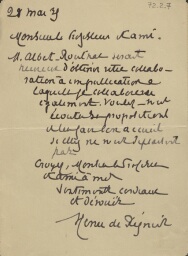 92.2.7
28 mai
Monsieur le Professeur et ami.
M. Albert serait
heureux d'obtenir votre collabo-
ration à une publication à
laquelle je collaborerai
également. Voulez-vous
écouter ses propositions
et leur faire bon accueil
si elles ne vous déplaisent
pas
Croyez, Monsieur le Professeur
et ami à mes
sentiments cordiaux
et dévoués
Henri de Régnier